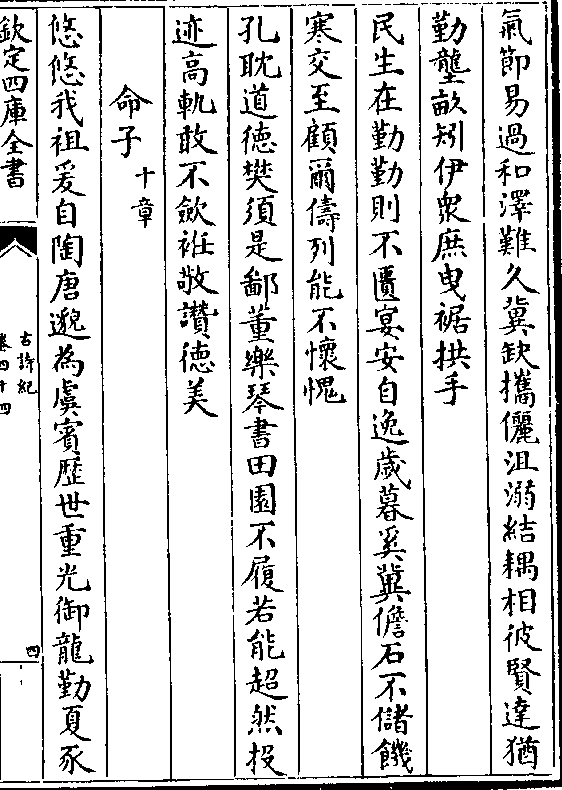 氣節易過和澤難久冀缺攜儷沮溺結耦相彼賢達猶
勤壟畝矧伊衆庶曳裾拱手
民生在勤勤則不匱宴安自逸歲暮奚冀儋石不儲饑
寒交至顧爾儔列能不懷愧
孔耽道德樊須是鄙董樂琴書田園不履若能超然投
迹高軌敢不歛袵敬讚德美
命子十章
悠悠我祖爰自陶唐邈為虞賓歴世重光御龍勤夏豕
欽定四庫全書
古詩紀
卷四十四
四